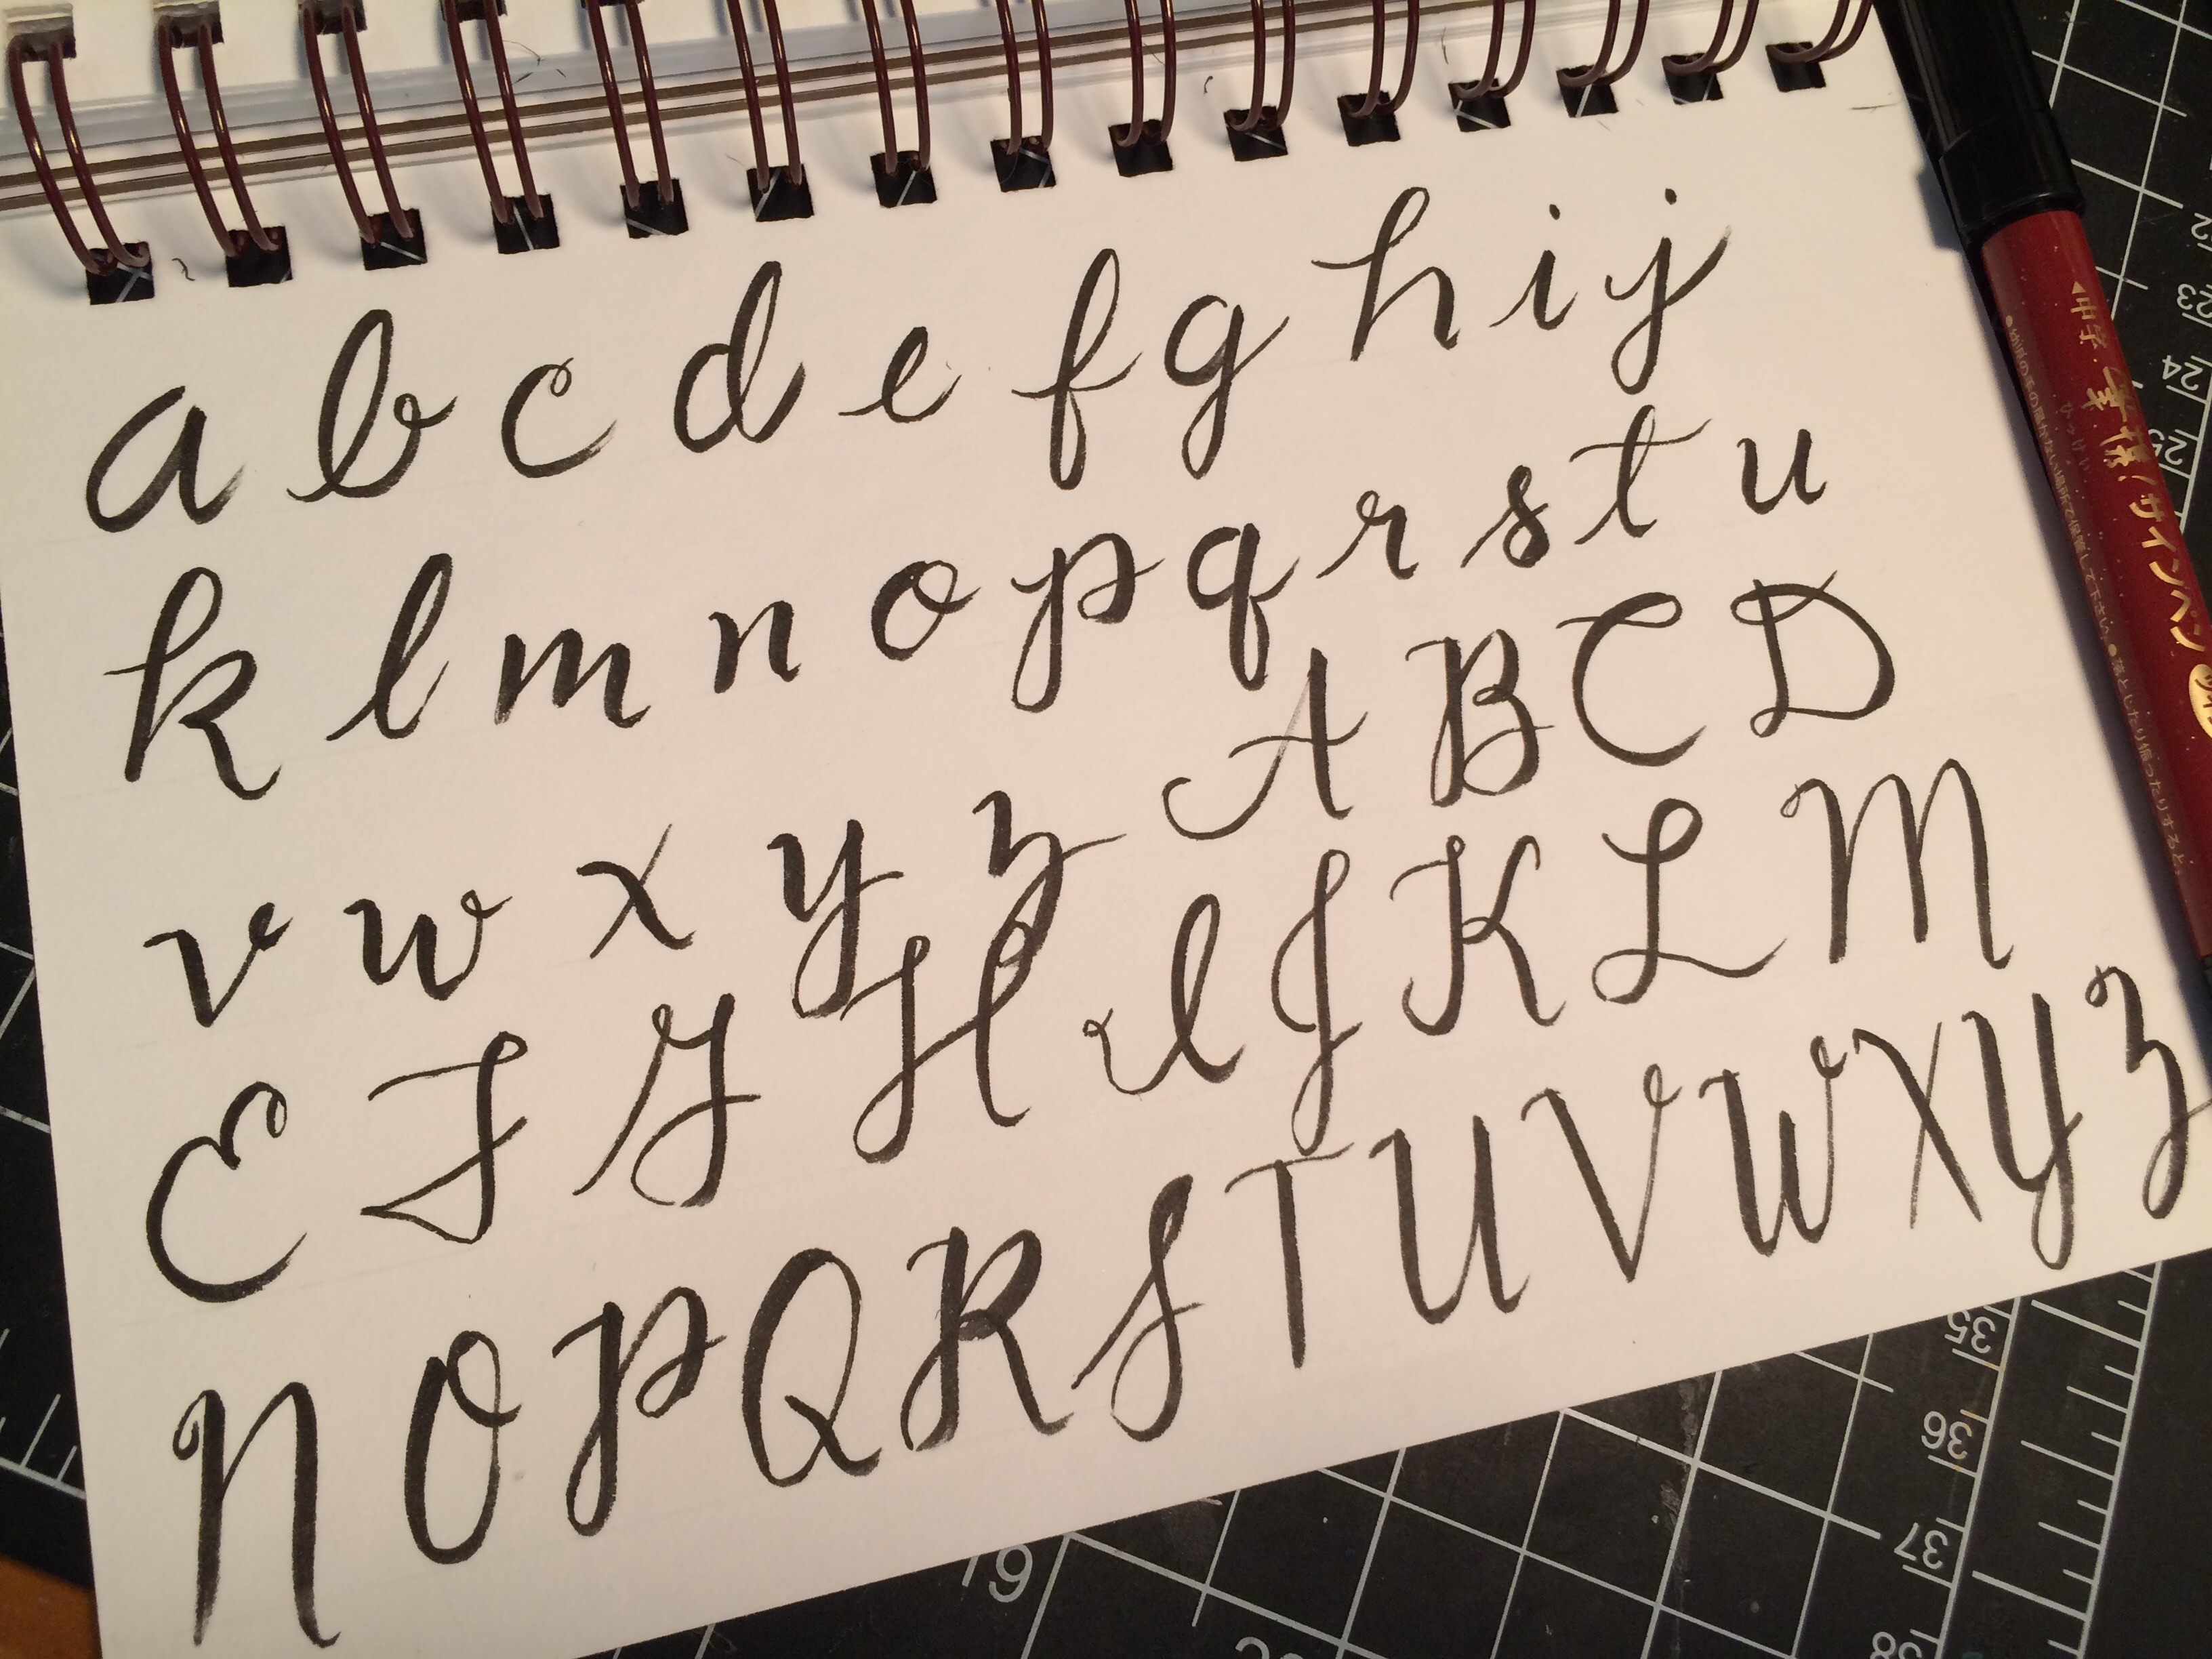 a b c d e f g h i j
k l m n o p q r s t u
v w x y z A B C D
E F G H I J K L M
N O P Q R S T U V W X Y Z
中字 筆ペン サインペン
23
24
25
35
36
37
38
19